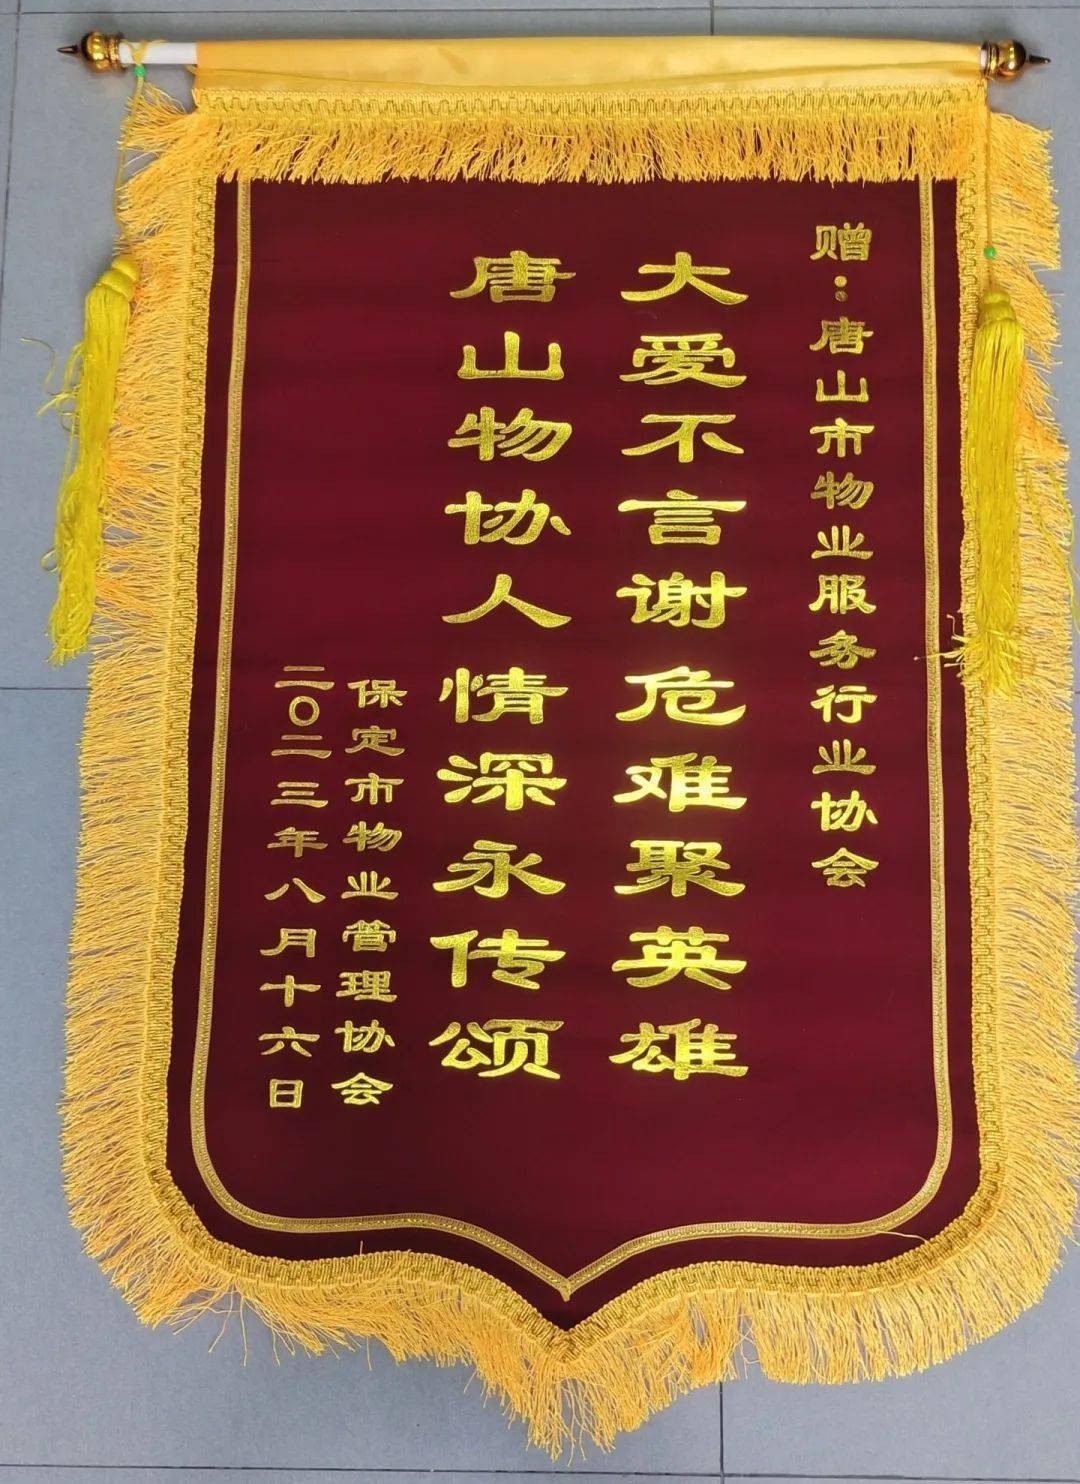 赠：唐山市物业服务行业协会
大爱不言谢危难聚英雄
唐山物协人情深永传颂
保定市物业管理协会
二〇二三年八月十六日